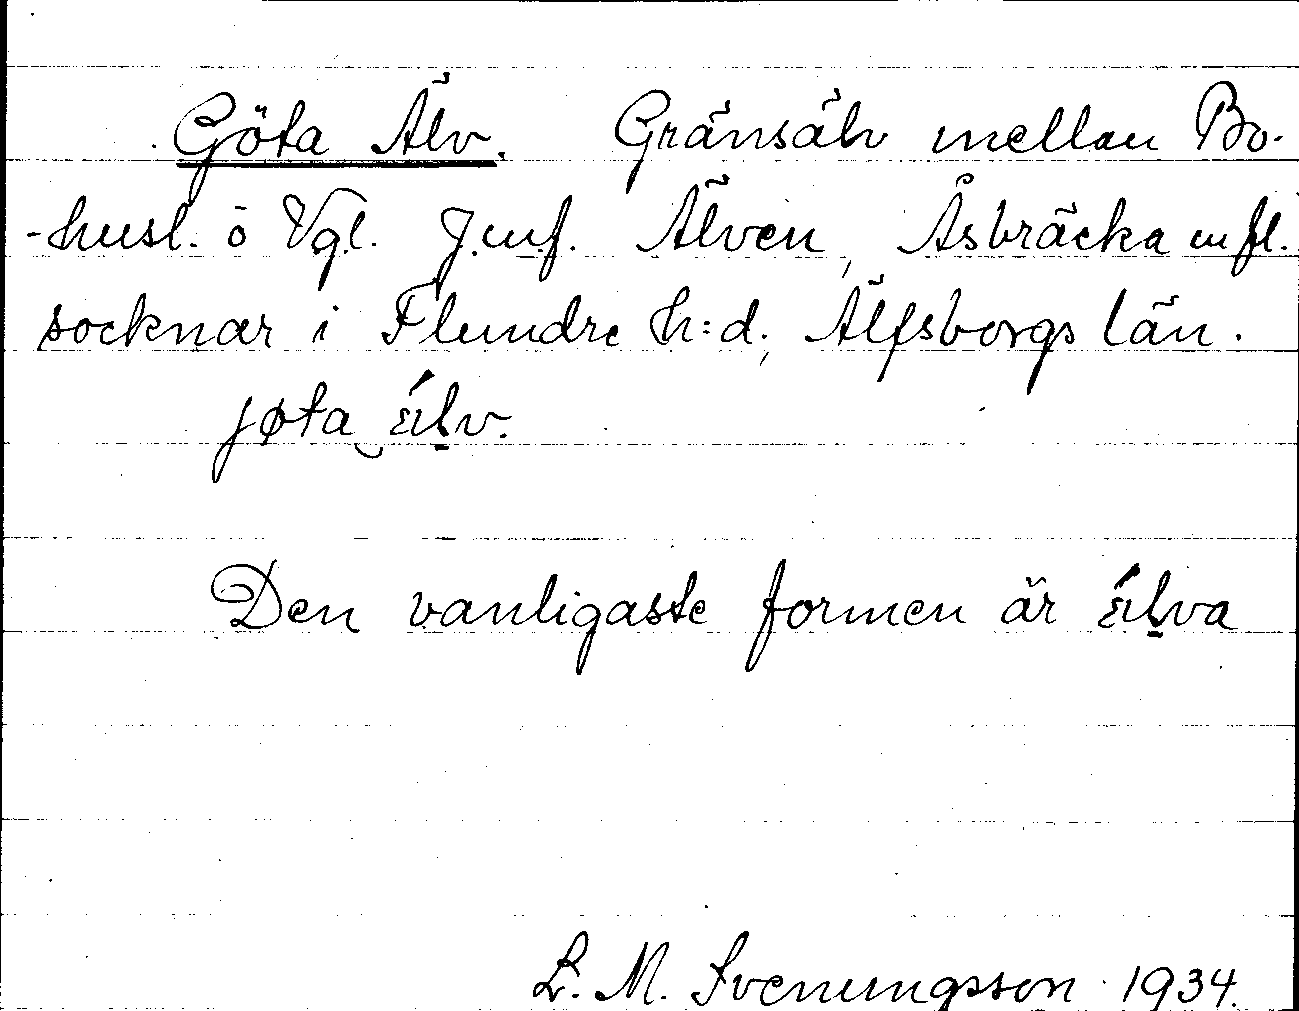 Göta Älv. Gränsälv mellan Bo-
-husl. o Vgl. Jmf. Älven, Åsbräcka m fl.
socknar i Flundre h:d., Älfsborgs län.
jøta ä́ḷv.
Den vanligaste formen är ä́ḷva
L. M. Svenungsson 1934.